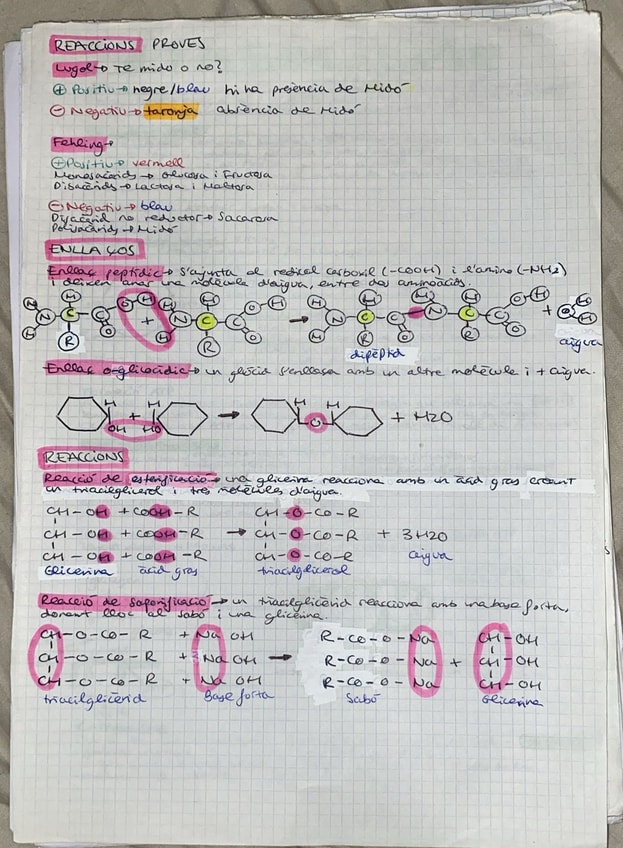 REACCIONS PROVES
Lugol → Té midó o no?
+ Positiu → negre/blau hi ha presència de Midó
- Negatiu → taronja absència de Midó
Fehling →
+ Positiu → vermell
Monosacàrids → Glucosa i Fructosa
Disacàrids → Lactosa i Maltosa
- Negatiu → blau
Disacàrid no reductor → Sacarosa
Polisacàrids → Midó
ENLLAÇOS
Enllaç peptídic → s'ajunta el radical carboxil (-COOH) i l'amino (-NH2)
i deixen anar una molècula d'aigua, entre dos aminoàcids.
H H H O H H H O H H H H H O H
H N C C + N C C → N C C N C C + O H
H R O H R O H R O R O H
dipèptid aigua
Enllaç o-glicosídic → un glúcid s'enllaça amb un altre molècula i + aigua.
H H H H
OH + HO → O + H2O
REACCIONS
Reacció de esterificació → una glicerina reacciona amb un àcid gras creant
un triacilglicerol i tres molècules d'aigua.
CH - OH + COOH - R CH - O - CO - R
CH - OH + COOH - R → CH - O - CO - R + 3H2O
CH - OH + COOH - R CH - O - CO - R aigua
Glicerina àcid gras triacilglicerol
Reacció de saponificació → un triacilglicèrid reacciona amb una base forta,
donant lloc al sabó i una glicerina.
CH - O - CO - R + Na OH R - CO - O - Na CH - OH
CH - O - CO - R + Na OH → R - CO - O - Na + CH - OH
CH - O - CO - R + Na OH R - CO - O - Na CH - OH
triacilglicèrid Base forta Sabó Glicerina